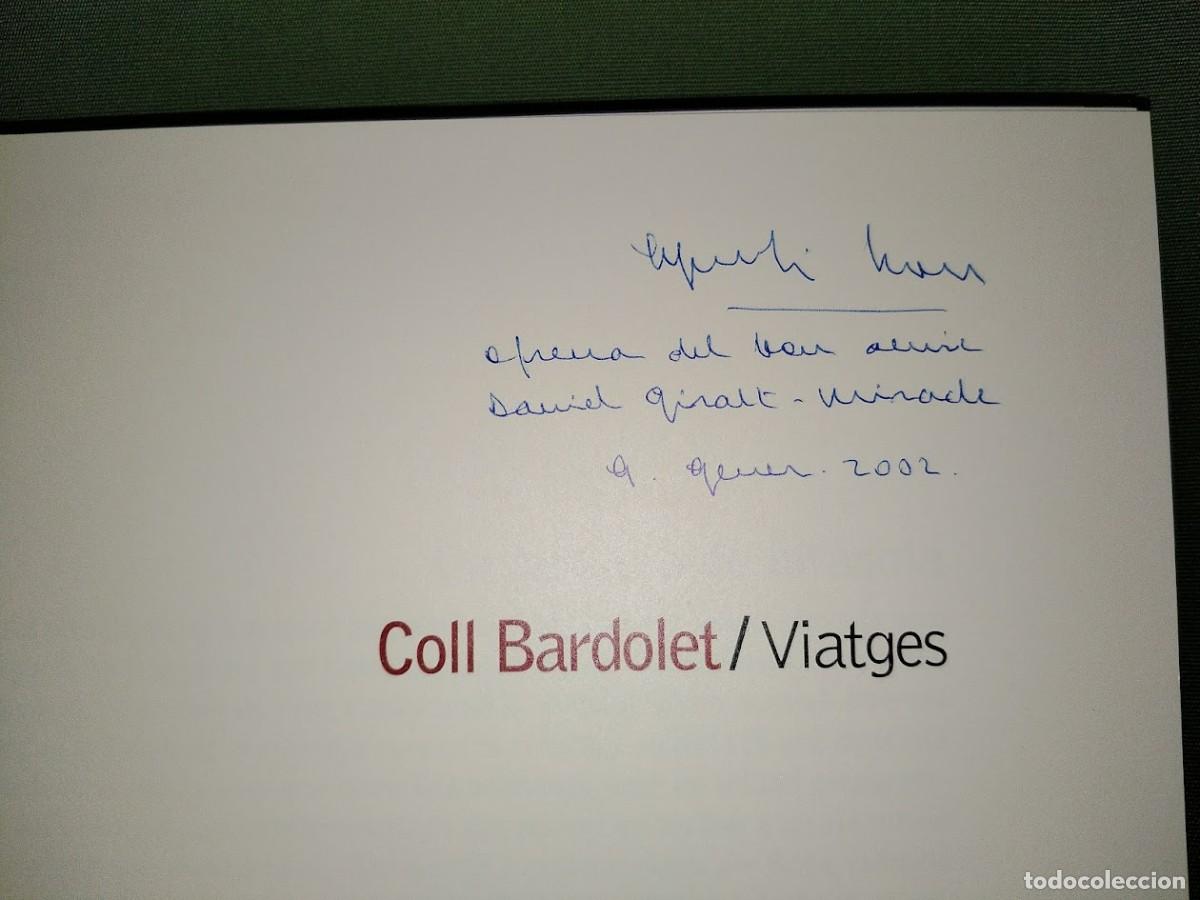 Agustí
ofrena del bon amic
Daniel Giralt-Miracle
9. gener. 2002.
Coll Bardolet / Viatges
todocoleccion